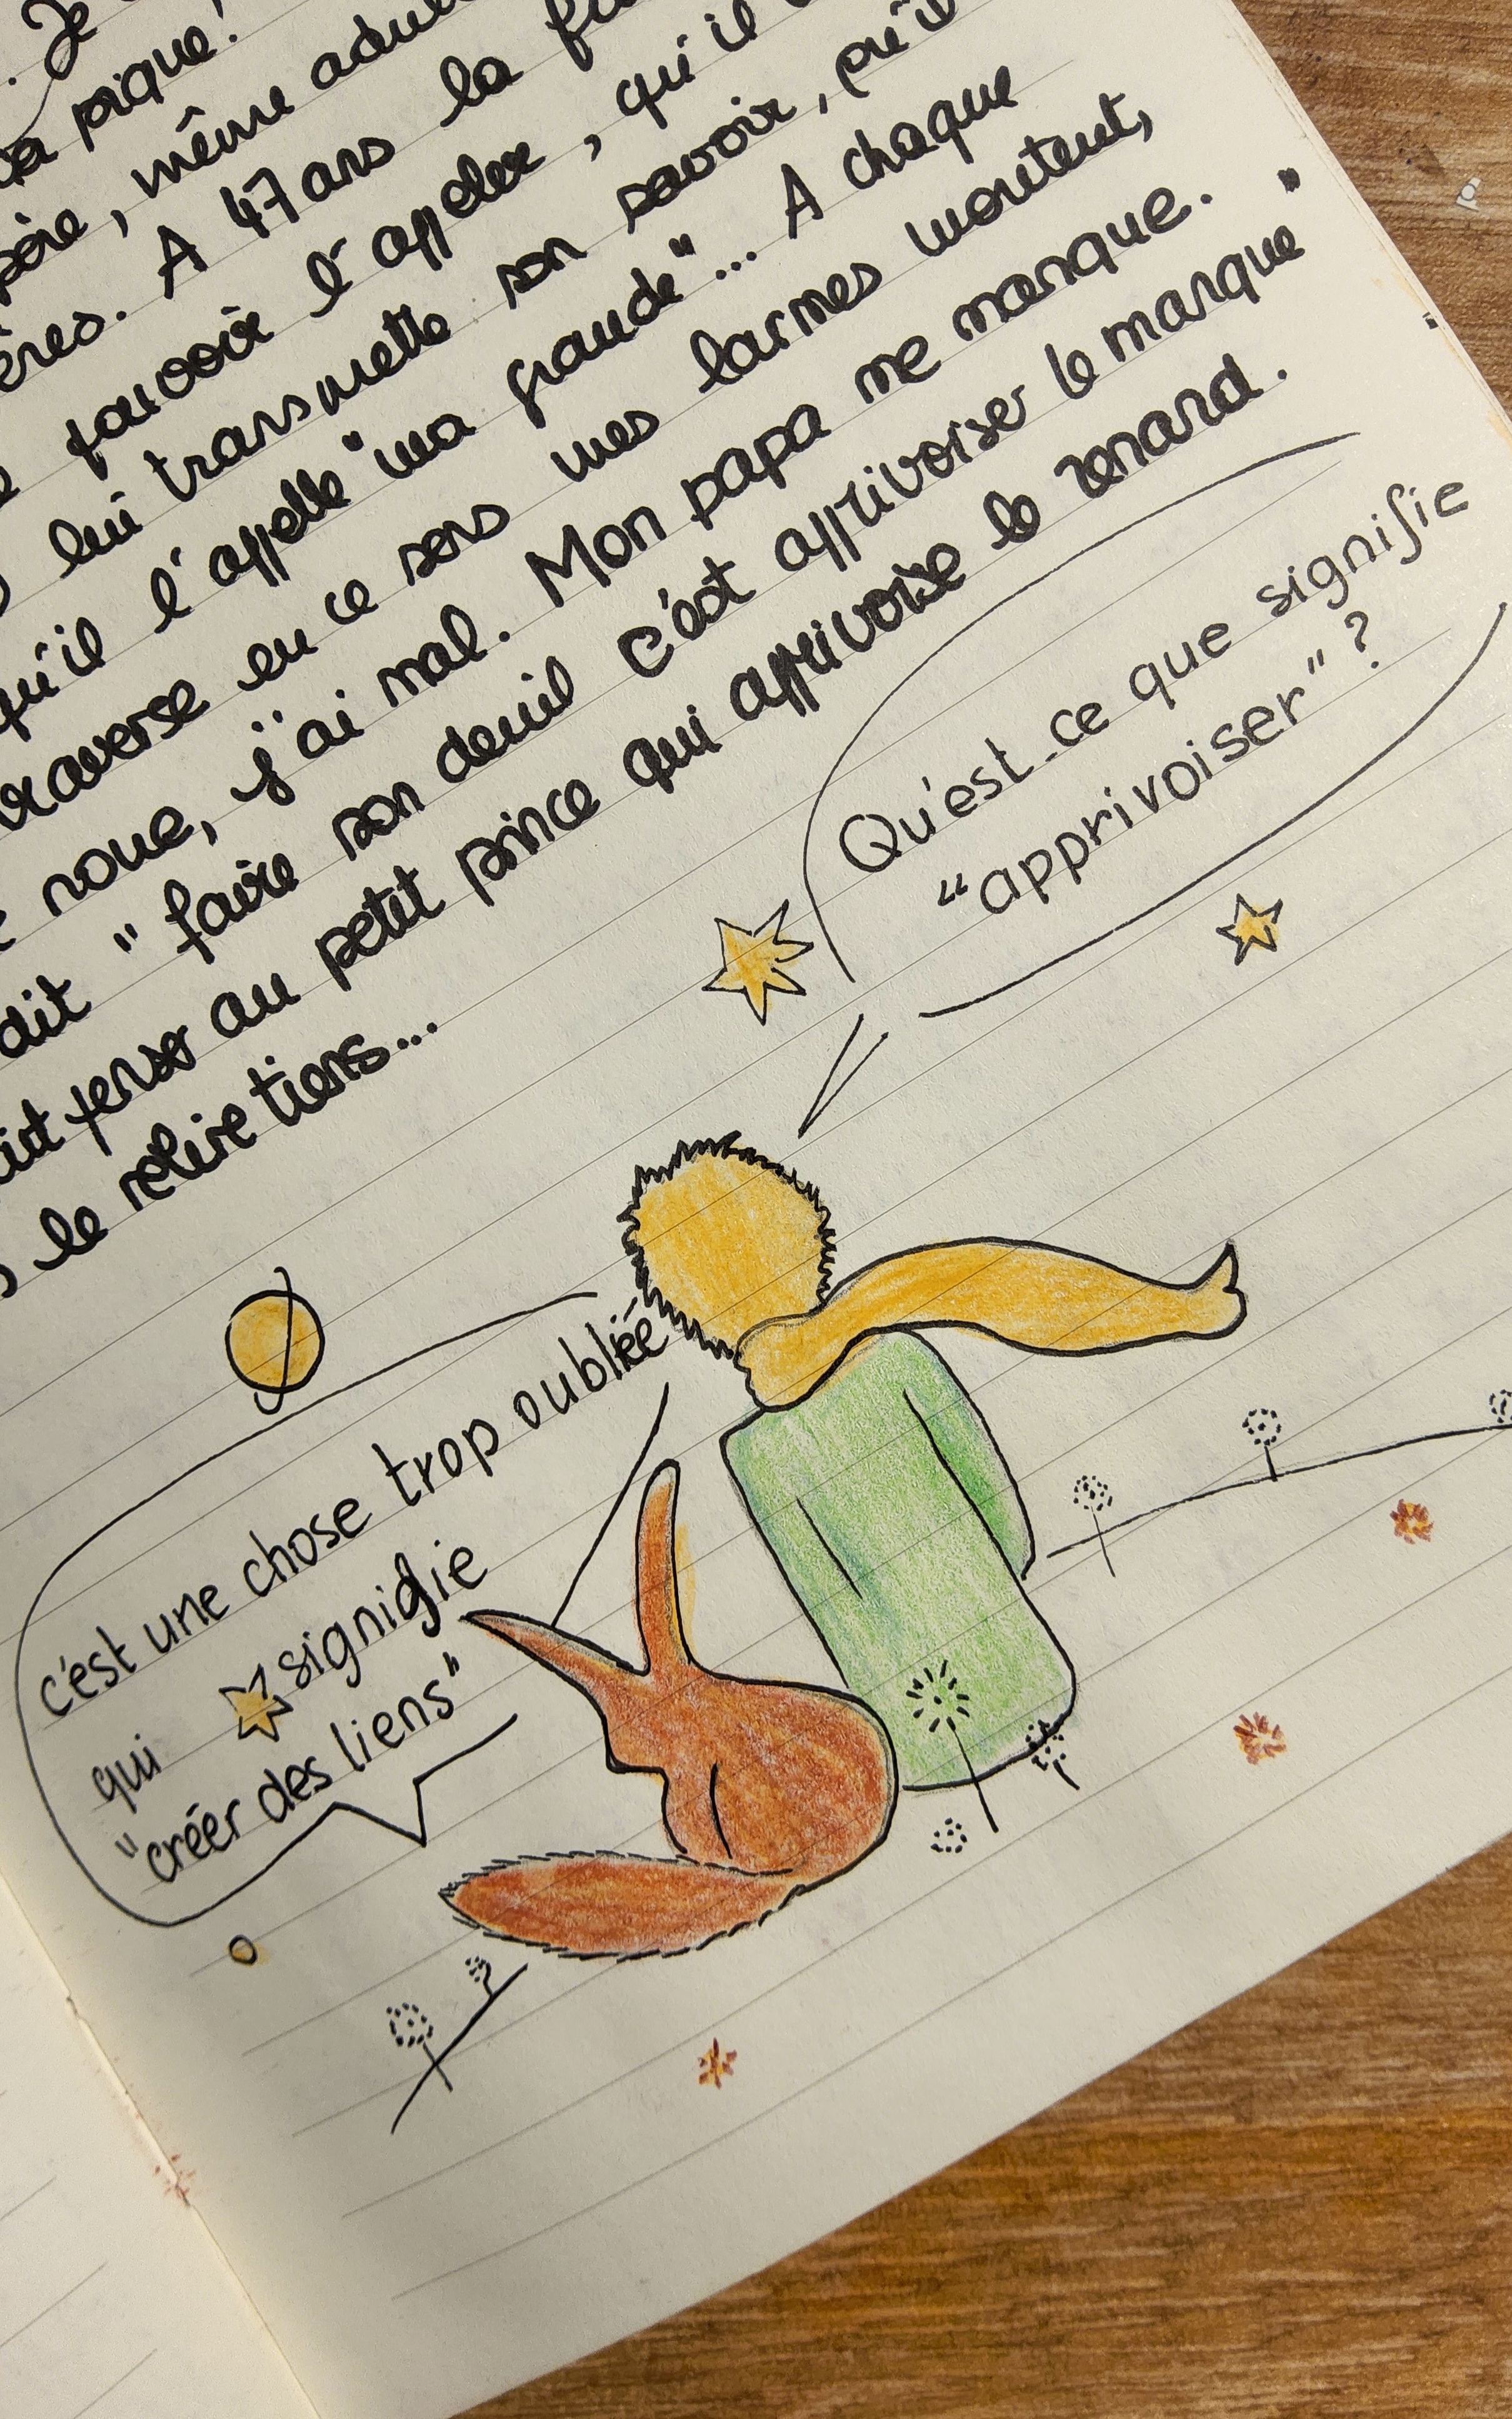 . Je
pique!
père, même adul
ères. A 47 ans la
pouvoir l'appeler, qu'il
lui transmette son savoir, qu'il
qu'il l'appelle "ma grande"... A chaque
traverse en ce sens mes larmes montent,
noue, j'ai mal. Mon papa me manque.
dit "faire son deuil c'est apprivoiser le manque"
penser au petit prince qui apprivoise le renard.
le relire tiens...
Qu'est-ce que signifie
"apprivoiser" ?
c'est une chose trop oubliée
qui signifie
"créer des liens"